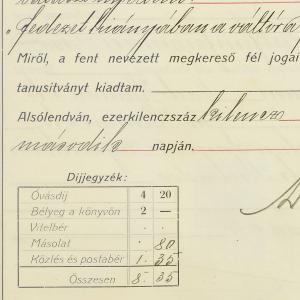 "fedezet hiányában a váltóra
Miről, a fent nevezett megkereső fél jogai
tanusitványt kiadtam.
Alsólendván, ezerkilenczszáz kilencz
második napján.
Díjjegyzék:
Óvásdíj 4 20
Bélyeg a könyvön 2 —
Vitelbér · ·
Másolat · 80
Közlés és postabér 1 · 35
Összesen 8 · 35